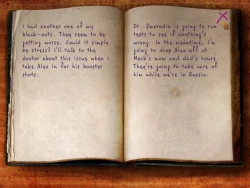 I had another one of my
black-outs. They seem to be
getting worse. Could it simply
be stress? I'll talk to the
doctor about this issue when I
take Alex in for his booster
shots.
Dr. Zmerodin is going to run
tests to see if anything's
wrong. In the meantime, I'm
going to drop Alex off at
Mark's mom and dad's house.
They're going to take care of
him while we're in Russia.